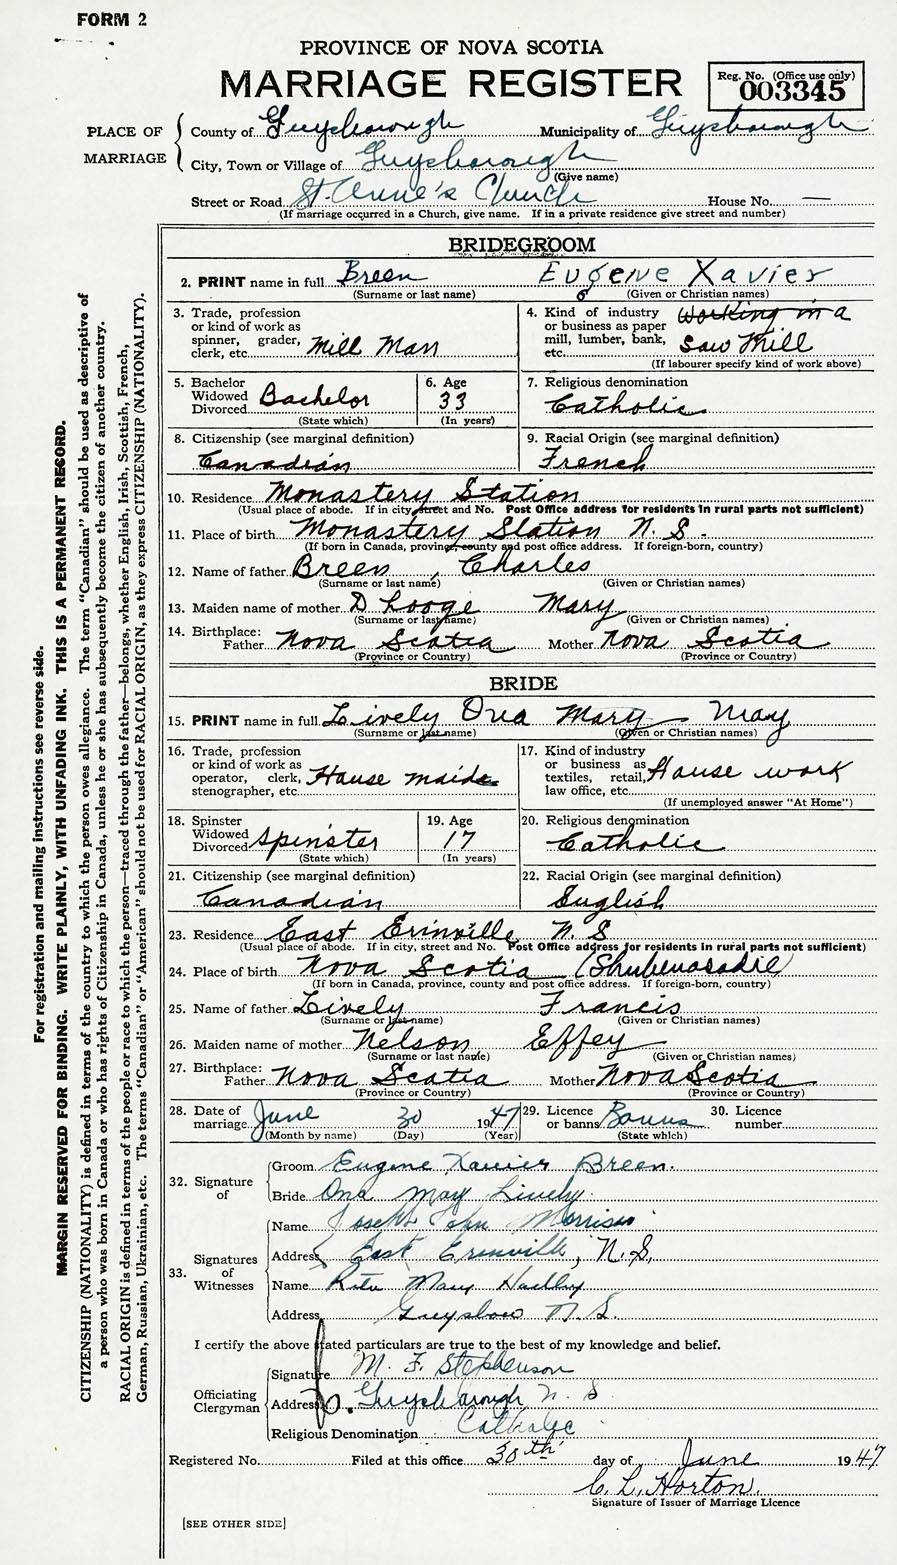 FORM 2
PROVINCE OF NOVA SCOTIA
MARRIAGE REGISTER
Reg. No. (Office use only)
003345
PLACE OF MARRIAGE
County of Guysborough Municipality of Guysborough
City, Town or Village of Guysborough
(Give name)
Street or Road St. Anne's Church House No. —
(If marriage occurred in a Church, give name. If in a private residence give street and number)
BRIDEGROOM
2. PRINT name in full Breen Eugene Xavier
(Surname or last name) (Given or Christian names)
3. Trade, profession or kind of work as spinner, grader, clerk, etc. Mill Man
4. Kind of industry or business as paper mill, lumber, bank, etc. Working in a Saw Mill
(If labourer specify kind of work above)
5. Bachelor Widowed Divorced Bachelor
(State which)
6. Age 33
(In years)
7. Religious denomination
Catholic
8. Citizenship (see marginal definition)
Canadian
9. Racial Origin (see marginal definition)
French
10. Residence Monastery Station
(Usual place of abode. If in city street and No. Post Office address for residents in rural parts not sufficient)
11. Place of birth Monastery Station N. S.
(If born in Canada, province, county and post office address. If foreign-born, country)
12. Name of father Breen, Charles
(Surname or last name) (Given or Christian names)
13. Maiden name of mother D Looge Mary
(Surname or last name) (Given or Christian names)
14. Birthplace: Father Nova Scotia Mother Nova Scotia
(Province or Country) (Province or Country)
BRIDE
15. PRINT name in full Lively Ona Mary May
(Surname or last name) (Given or Christian names)
16. Trade, profession or kind of work as operator, clerk, stenographer, etc. House maid
17. Kind of industry or business as textiles, retail, law office, etc. House work
(If unemployed answer "At Home")
18. Spinster Widowed Divorced Spinster
(State which)
19. Age 17
(In years)
20. Religious denomination
Catholic
21. Citizenship (see marginal definition)
Canadian
22. Racial Origin (see marginal definition)
English
23. Residence East Erinville N. S
(Usual place of abode. If in city, street and No. Post Office address for residents in rural parts not sufficient)
24. Place of birth Nova Scotia (Shubenacadie)
(If born in Canada, province, county and post office address. If foreign-born, country)
25. Name of father Lively Francis
(Surname or last name) (Given or Christian names)
26. Maiden name of mother Nelson Effey
(Surname or last name) (Given or Christian names)
27. Birthplace: Father Nova Scotia Mother Nova Scotia
(Province or Country) (Province or Country)
28. Date of marriage June 30 1947
(Month by name) (Day) (Year)
29. Licence or banns Banns
(State which)
30. Licence number
32. Signature of
Groom Eugene Xavier Breen.
Bride Ona May Lively.
33. Signatures of Witnesses
Name Joseph John Morrison
Address East Erinville, N.S.
Name Rita Mary Hadley
Address Guysboro N. S.
I certify the above stated particulars are true to the best of my knowledge and belief.
Officiating Clergyman
Signature M. F. Stephenson
Address Guysborough N. S
Religious Denomination Catholic
Registered No. Filed at this office 30th day of June 1947
C. L. Horton.
Signature of Issuer of Marriage Licence
[SEE OTHER SIDE]
For registration and mailing instructions see reverse side.
MARGIN RESERVED FOR BINDING. WRITE PLAINLY, WITH UNFADING INK. THIS IS A PERMANENT RECORD.
CITIZENSHIP (NATIONALITY) is defined in terms of the country to which the person owes allegiance. The term "Canadian" should be used as descriptive of
a person who was born in Canada or who has rights of Citizenship in Canada, unless he or she has subsequently become the citizen of another country.
RACIAL ORIGIN is defined in terms of the people or race to which the person—traced through the father—belongs, whether English, Irish, Scottish, French,
German, Russian, Ukrainian, etc. The terms "Canadian" or "American" should not be used for RACIAL ORIGIN, as they express CITIZENSHIP (NATIONALITY).